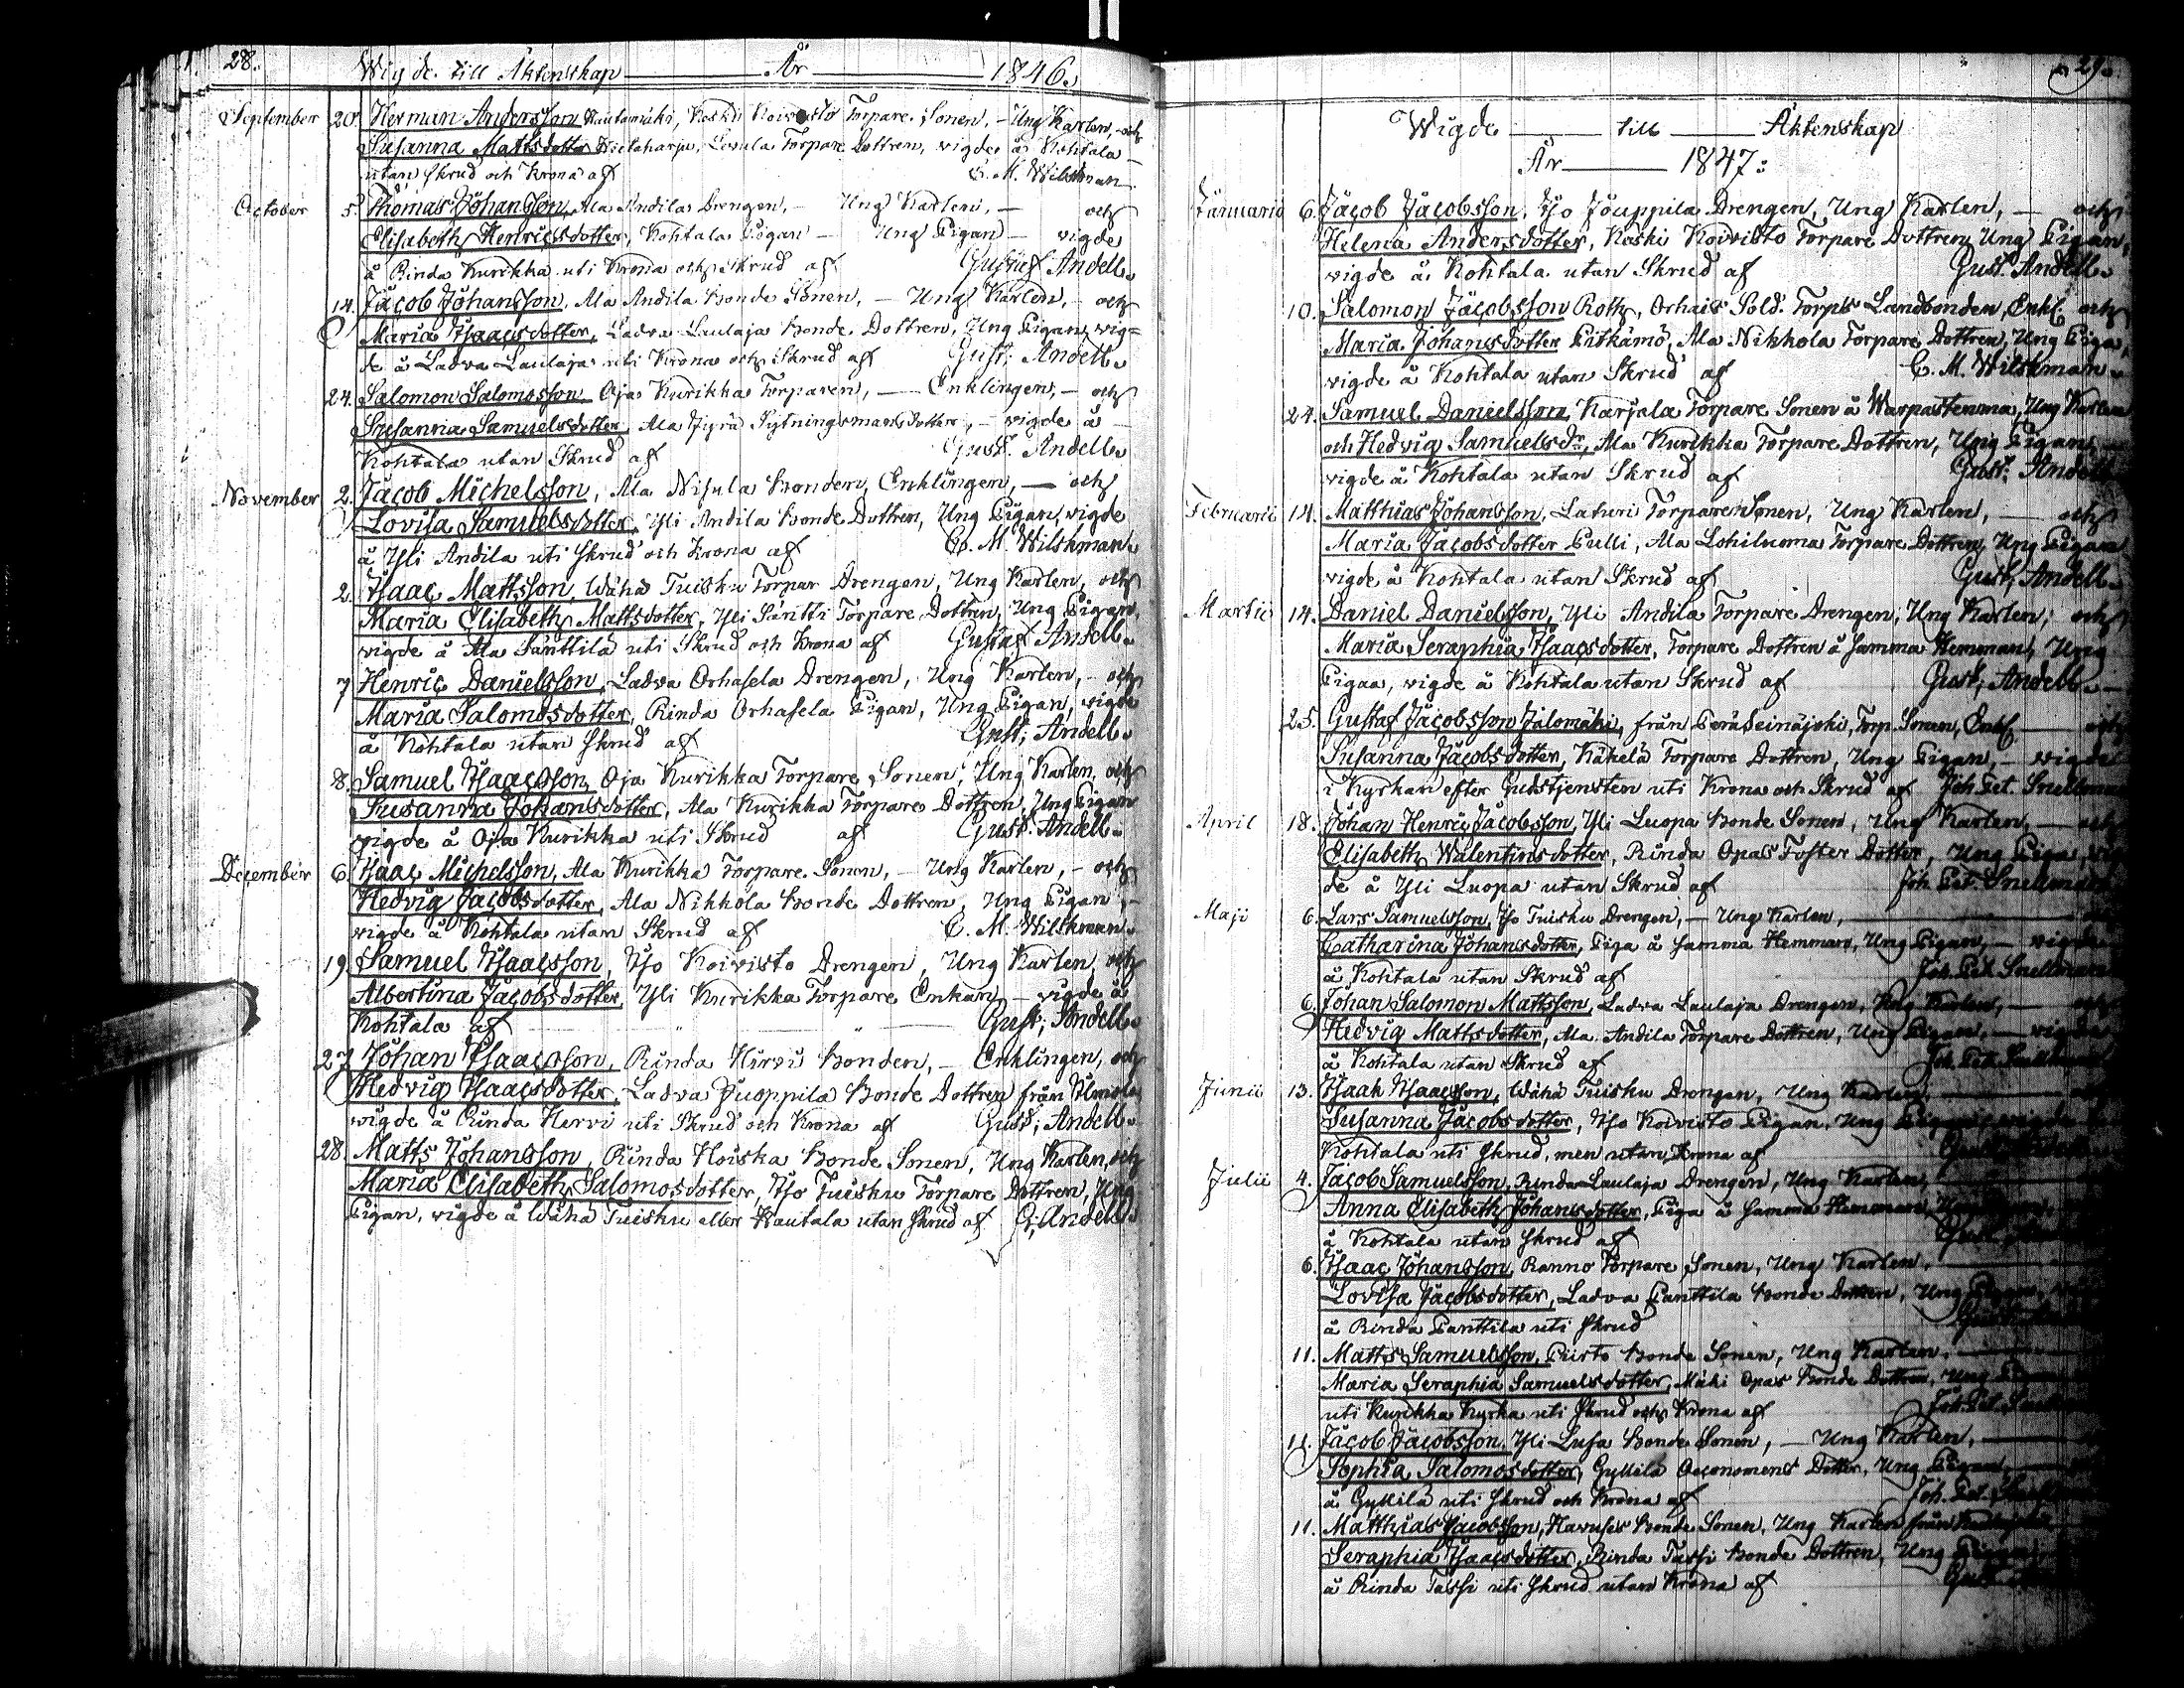 28.
Wigde till Äktenskap År 1846.
September 20. Herman Andersson Rautamäki, Keski Koivisto Torpare Sonen, - Ung Karlen, och
Susanna Mattsdotter Kieleharju, Levula Torpare Dottren, vigde å Kohtala
utan skrud och krona af C. M. Wilskman.
October 5. Thomas Johansson, Ala Andila Drengen, - Ung Karlen, - och
Elisabeth Henricsdotter, Kohtala Pigan - Ung Pigan - vigde
å Rinda Kurikka uti Krona och Skrud af Gustaf Andell.
14. Jacob Johansson, Ala Andila Bonde Sonen, - Ung Karlen, - och
Maria Isaacsdotter, Ladva Laulaja Bonde Dottren, Ung Pigan, vig=
de å Ladva Laulaja uti Krona och Skrud af Gust; Andell.
24. Salomon Salomosson Oja Kurikka Torparen, - Enklingen, - och
Susanna Samuelsdotter, Ala Jyrä Sytningsmansdotter, - vigde å
Kohtala utan Skrud af Gust. Andell.
November 2. Jacob Michelsson, Ala Nisula Bonden, Enklingen, - och
Lovisa Samuelsdotter, Yli Andila Bonde Dottren, Ung Pigan, vigde
å Yli Andila uti Skrud och Krona af C. M. Wilskman.
2. Isaac Mattsson, Wähä Tuisku Torpar Drengen, Ung Karlen, och
Maria Elisabeth Mattsdotter, Yli Säntti Torpare Dottren, Ung Pigan,
vigde å Ala Sänttilä uti Skrud och Krona af Gustaf Andell.
7 Henric Danielsson, Ladva Orhasela Drengen, Ung Karlen, - och
Maria Salomosdotter, Rinda Orhasela Pigan, Ung Pigan, vigde
å Kohtala utan Skrud af Gust; Andell.
8. Samuel Isaacsson, Oja Kurikka Torpare Sonen, Ung Karlen, och
Susanna Johansdotter, Ala Kurikka Torpare Dottren, Ung Pigan
vigde å Oja Kurikka uti Skrud af Gust. Andell.
December 6. Isaac Michelsson, Ala Kurikka Torpare Sonen, - Ung Karlen, - och
Hedvig Jacobsdotter, Ala Nikkola Bonde Dottren, Ung Pigan, -
vigde å Kohtala utan Skrud af C. M. Wilskman.
19. Samuel Isaacsson, Iso Koivisto Drengen, Ung Karlen, och
Albertina Jacobsdotter, Yli Kurikka Torpare Enkan, - vigde å
Kohtala af Gust; Andell.
27. Johan Isaacsson, Rinda Hirvi Bonden, - Enklingen, och
Hedvig Isaacsdotter, Ladva Juoppila Bonde Dottren från Ilmola
vigde å Rinda Hervi uti Skrud och Krona af Gust; Andell.
28. Matts Johansson, Rinda Hoiska Bonde Sonen, Ung Karlen, och
Maria Elisabeth Salomosdotter, Iso Tuisku Torpare Dottren, Ung
Pigan, vigde å Wähä Tuisku eller Rautala utan skrud af G. Andell.
29.
Wigde till Äktenskap
År 1847.
Januarii 6. Jacob Jacobsson, Iso Jouppila Drengen, Ung Karlen, - och
Helena Andersdotter, Keski Koivisto Torpare Dottren, Ung Pigan,
vigde å Kohtala utan Skrud af Gust. Andell.
10. Salomon Jacobsson Roth, Orhais Sold. Torps Landbonden, Enkl. och
Maria Johansdotter Pitkämö, Ala Nikkola Torpare Dottren, Ung Piga,
vigde å Kohtala utan Skrud af C. M. Wilskman.
24. Samuel Danielsson, Karjala Torpare Sonen å Warpastenma, Ung Karlen
och Hedvig Samuelsdr, Ala Kurikka Torpare Dottren, Ung Pigan,
vigde å Kohtala utan Skrud af Gust. Andell
Februarii 14. Matthias Johansson, Laturi Torpare Sonen, Ung Karlen, - och
Maria Jacobsdotter Pulli, Ala Lohiluoma Torpare Dottren, Ung Pigan
vigde å Kohtala utan Skrud af Gust; Andell.
Martii 14. Daniel Danielsson, Yli Andila Torpare Drengen, Ung Karlen, och
Maria Seraphia Isaacsdotter, Torpare Dottren å samma Hemman, Ung
Pigan, vigde å Kohtala utan Skrud af Gust; Andell.
25. Gustaf Jacobsson Jalomäki, från Peräseinäjoki, Torp. Sonen, Enkl. - och
Susanna Jacobsdotter, Käkelä Torpare Dottren, Ung Pigan, - vigde
i Kyrkan efter Gudstjensten uti Krona och Skrud af Joh. Pet. Snellman
April 18. Johan Henric Jacobsson, Yli Luopa Bonde Sonen, Ung Karlen, - och
Elisabeth Walentinsdotter, Rinda Opas Foster Dotter, Ung Piga, vig
de å Yli Luopa utan Skrud af Joh. Pet. Snellman
Maji 6. Lars Samuelsson, Iso Tuisku Drengen, - Ung Karlen,
Catharina Johansdotter, Piga å samma Hemman, Ung Pigan, - vigde
å Kohtala utan Skrud af Joh. Pet. Snellman
6. Johan Salomon Mattsson, Ladva Laulaja Drengen, Ung Karlen,
Hedvig Mattsdotter, Ala Andila Torpare Dottren, Ung Pigan, - vigde
å Kohtala utan Skrud af Joh. Pet. Snellman
Junii 13. Isaak Isaacsson, Wähä Tuisku Drengen, Ung Karlen,
Susanna Jacobsdotter, Iso Koivisto Pigan, Ung Pigan, vigde
Kohtala uti Skrud, men utan Krona af
Julii 4. Jacob Samuelsson, Rinda Laulaja Drengen, Ung Karlen
Anna Elisabeth Johansdotter, Piga å samma Hemman,
å Kohtala utan skrud af
6. Isaac Johansson, Ranno Torpare Sonen, Ung Karlen,
Lovisa Jacobsdotter, Ladva Panttila Bonde Dottren, Ung Pigan
å Rinda Panttila uti Skrud
11. Matts Samuelsson, Puisto Bonde Sonen, Ung Karlen,
Maria Seraphia Samuelsdotter, Mäki Opas Bonde Dottren, Ung
uti Kurikka Kyrka uti Skrud och Krona af
11. Jacob Jacobsson, Yli Lusa Bonde Sonen, - Ung Karlen,
Sophia Salomosdotter, Gyllilä Oeconomens Dotter, Ung Pigan
å Gyllilä uti Skrud och Krona af
11. Matthias Jacobsson, Havuses Bonde Sonen, Ung Karlen från
Seraphia Isaacsdotter, Rinda Tassi Bonde Dottren, Ung Pigan
å Rinda Tassi uti Skrud utan Krona af